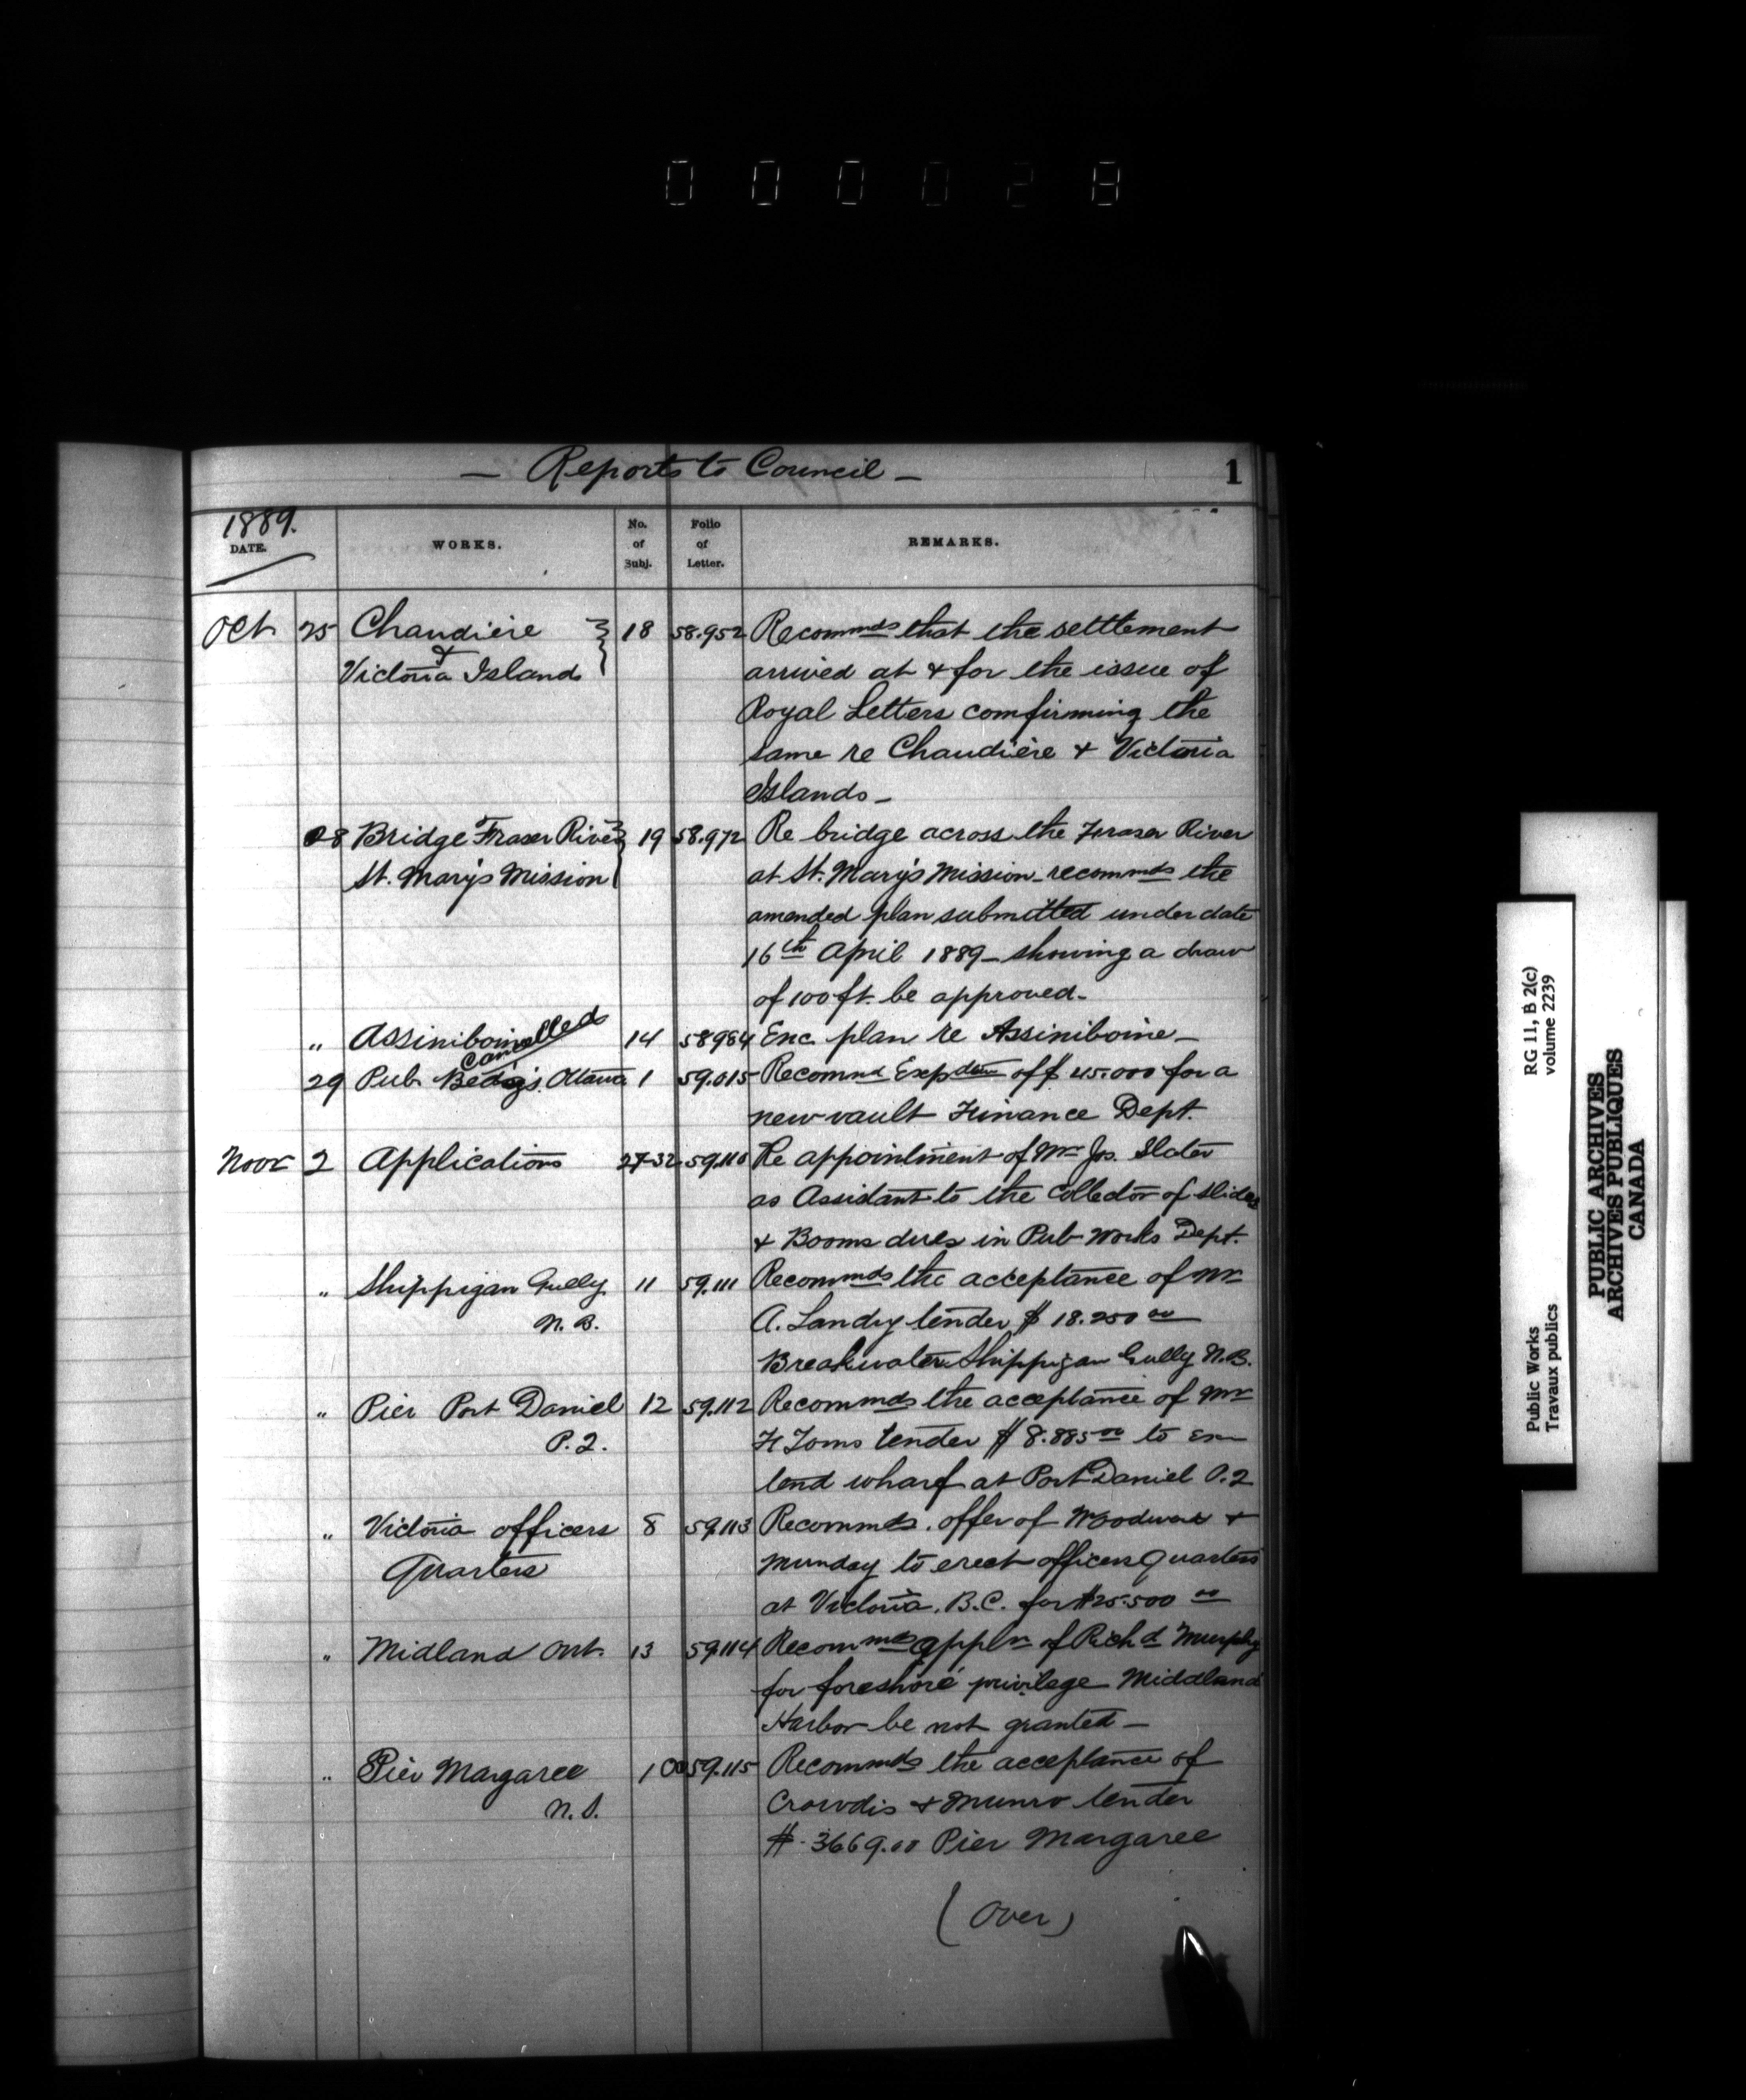 000028
— Reports to Council — 1
1889.
DATE. WORKS. No. of Subj. Folio of Letter. REMARKS.
Oct 25 Chaudière 18 58.952 Recommds that the settlement
&
Victoria Islands arrived at & for the issue of
Royal Letters comfirming the
same re Chaudière & Victoria
Islands —
28 Bridge Fraser River 19 58.972 Re bridge across the Fraser River
St. Mary's Mission at St. Mary's Mission — recommds the
amended plan submitted under date
16th April 1889 — showing a draw
of 100 ft. be approved —
" Assiniboine 14 58984 Enc plan re Assiniboine —
Cancelled
29 Pub Bldgs. Ottawa 1 59.015 Recommd Expdtn of $ 45.000 for a
new vault Finance Dept.
Novr 2 Applications 27-32 59.110 Re appointment of Mr Jos. Slater
as Assistant to the Collector of Slides
& Booms dues in Pub Works Dept.
" Shippigan Gully 11 59.111 Recommds the acceptance of Mr
N.B. A. Landry tender $ 18.250 00
Breakwater Shippigan Gully N.B.
" Pier Port Daniel 12 59.112 Recommds the acceptance of Mr
P.Q. H Toms tender $ 8.885 00 to ex
tend wharf at Port Daniel P.Q
" Victoria officers 8 59.113 Recommds. offer of &
Quarters Munday to erect officers Quarters
at Victoria. B.C. for $25.500 00
" Midland Ont. 13 59114 Recommds appln of Richd Murphy
for foreshore privilage Middland
Harbor be not granted —
" Pier Margaree 10 59.115 Recommds the acceptance of
N.S. Crowdis & Munro tender
$ 3669.00 Pier Margaree
(Over)
Public Works RG 11, B 2(c)
Travaux publics volume 2239
PUBLIC ARCHIVES
ARCHIVES PUBLIQUES
CANADA